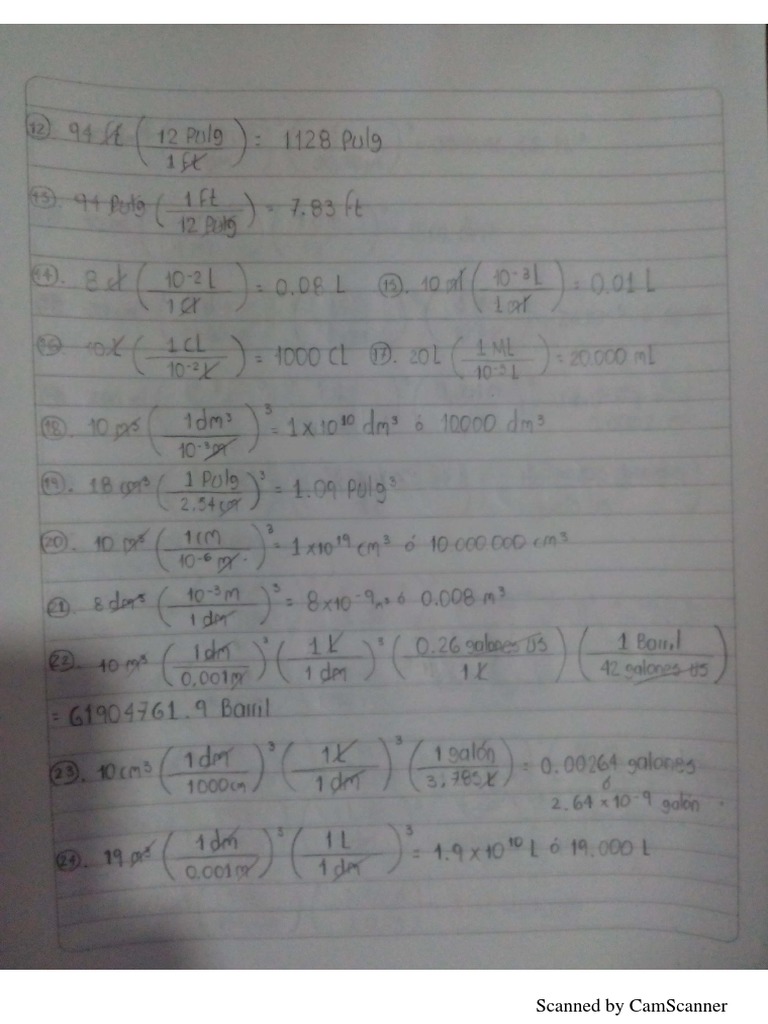 12) 94 ft ( 12 Pulg / 1 ft ) = 1128 Pulg
13). 94 Pulg ( 1 ft / 12 Pulg ) = 7.83 ft
14). 8 cl ( 10-2 l / 1 cl ) = 0.08 L 15). 10 ml ( 10-3 L / 1 ml ) = 0.01 L
16 10 l ( 1 CL / 10-2 l ) = 1000 Cl 17). 20 L ( 1 ML / 10-3 L ) = 20.000 mL
18). 10 m3 ( 1 dm3 / 10-3 m )3 = 1 x 10 10 dm3 ó 10000 dm3
19). 18 cm3 ( 1 Pulg / 2.54 cm )3 = 1.09 Pulg3
20). 10 m3 ( 1 cm / 10-6 m. )3 = 1 x 10 19 cm3 ó 10.000.000 cm3
21). 8 dm3 ( 10-3 m / 1 dm )3 = 8 x 10-9 m3 ó 0.008 m3
22). 10 m3 ( 1 dm / 0.001 m )3 ( 1 l / 1 dm )3 ( 0.26 galones US / 1 l ) ( 1 Barril / 42 galones US )
= 61904761.9 Barril
23). 10 cm3 ( 1 dm / 1000 cm )3 ( 1 l / 1 dm )3 ( 1 galón / 3.785 l ) = 0.00264 galones
ó
2.64 x 10-9 galón.
24). 19 m3 ( 1 dm / 0.001 m )3 ( 1 L / 1 dm )3 = 1.9 x 10 10 L ó 19.000 L
Scanned by CamScanner